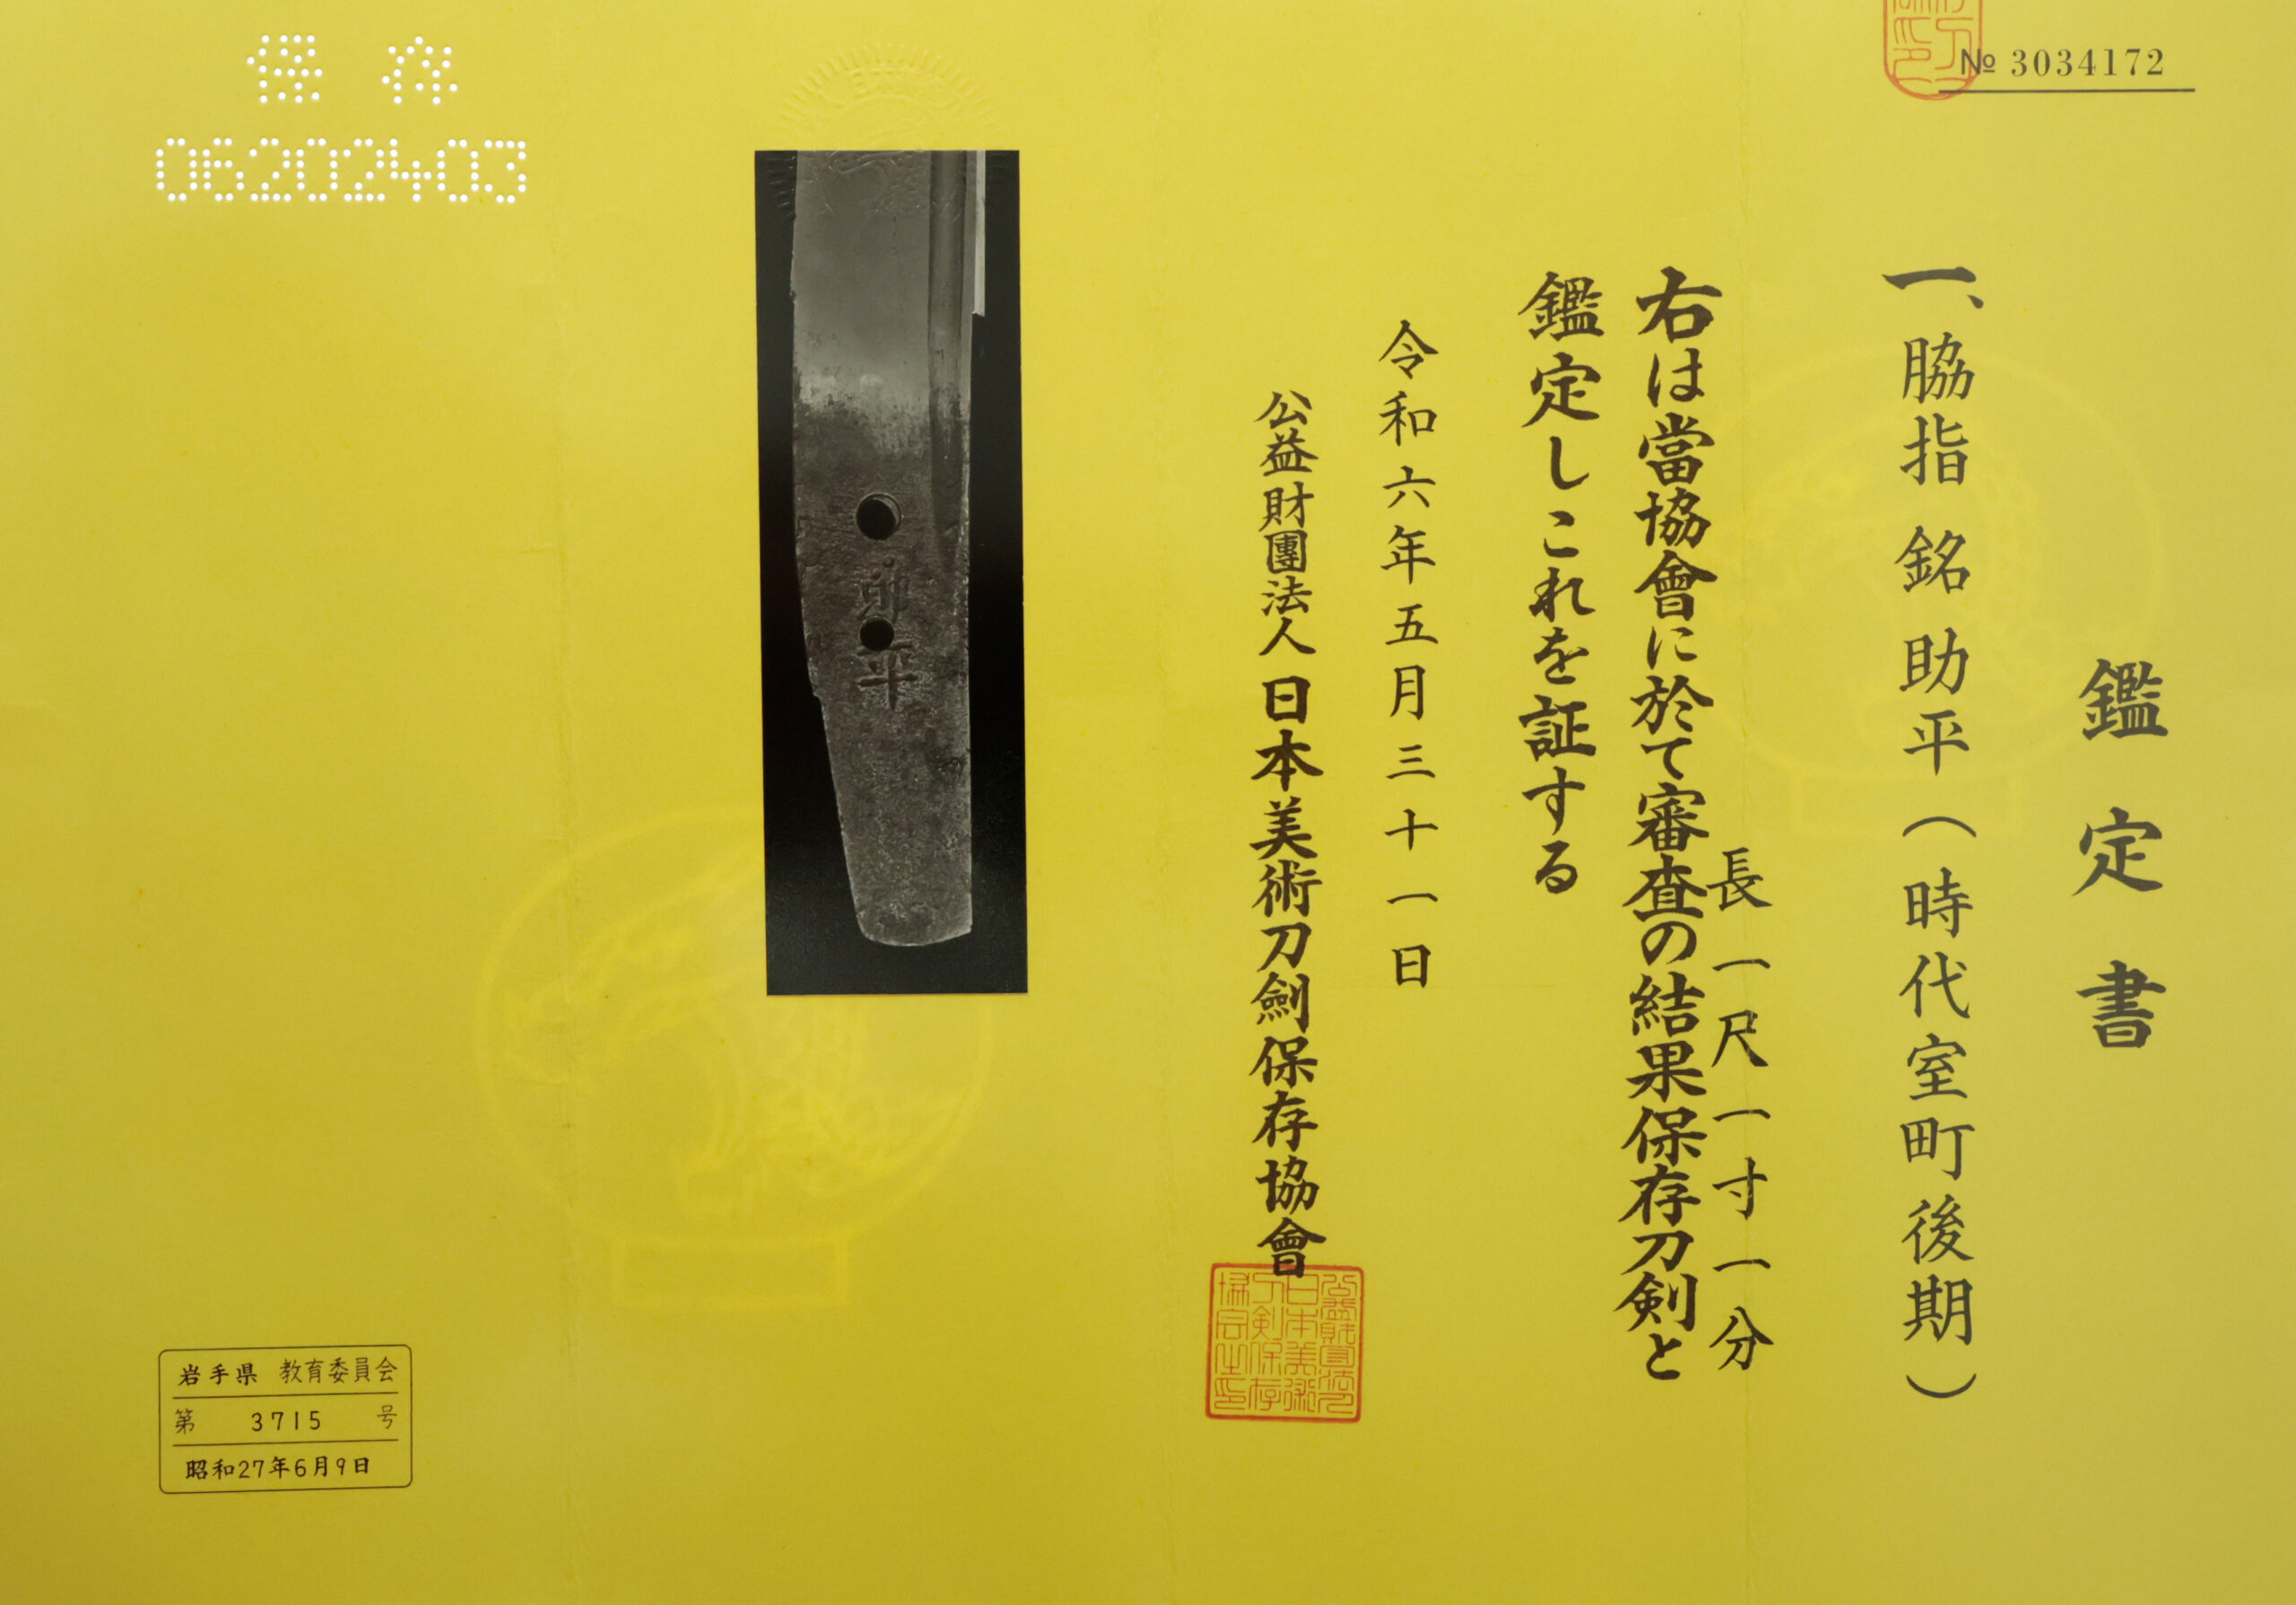 № 3034172
鑑定書
一、脇指 銘 助平(時代室町後期)
長一尺一寸一分
右は當協會に於て審査の結果保存刀剣と
鑑定しこれを証する
令和六年五月三十一日
公益財團法人 日本美術刀劍保存協會
助平
保存
06202403
岩手県 教育委員会
第 3715 号
昭和27年6月9日